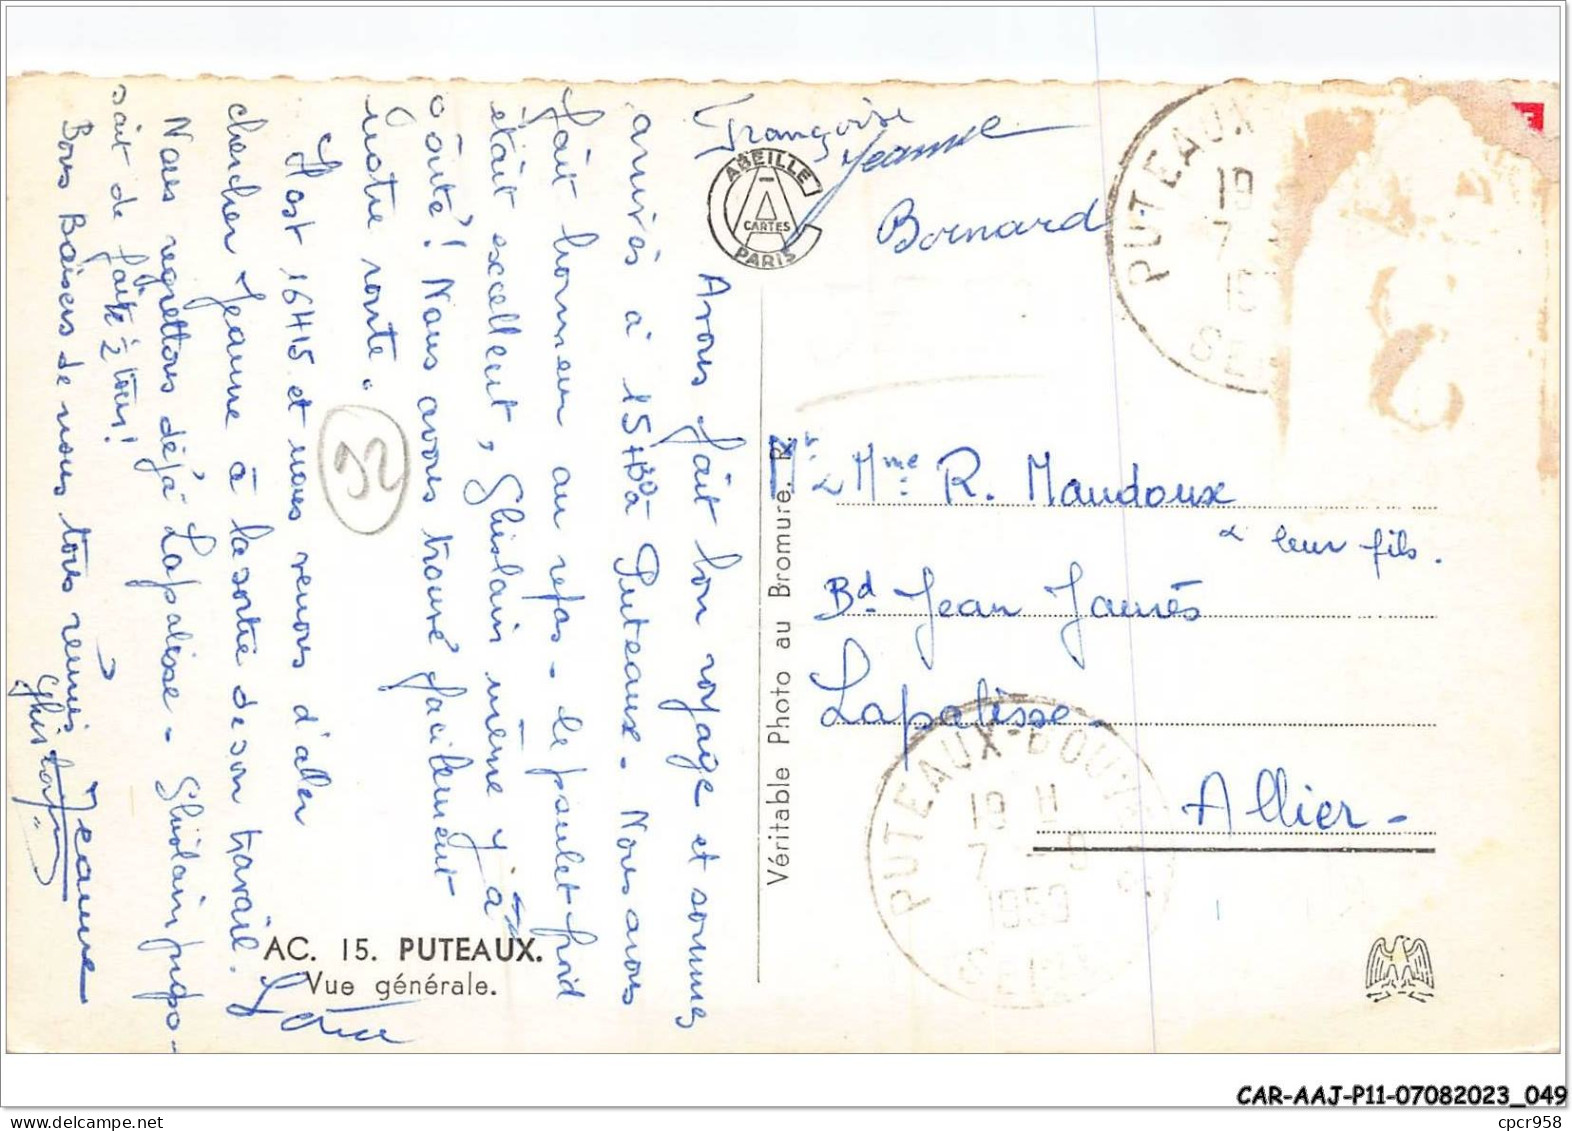 Avons fait bon voyage et sommes
arrivés à 15H30 à Puteaux. Nous avons
fait honneur au repas - le poulet froid
était excellent, Ghislain même y a
goûté! Nous avons trouvé facilement
notre route.
Il est 16H15 et nous venons d'aller
chercher Jeanne à la sortie de son travail.
Nous regrettons déjà Lapalisse - Ghislain propo-
sait de faire ½ tour!
Bons Baisers de nous tous réunis
Jeanne
Ghislain
Françoise
Jeanne
Bernard
92
AC. 15. PUTEAUX.
Vue générale.
ABEILLE
CARTES
PARIS
Véritable Photo au Bromure.
PUTEAUX
19
7
SE
Mr & Mme R. Maudoux
& leur fils.
Bd Jean Jaurès
Lapalisse -
Allier -
PUTEAUX-BOU
19 H
7
1959
SEINE
CAR-AAJ-P11-07082023_049
cpcr958